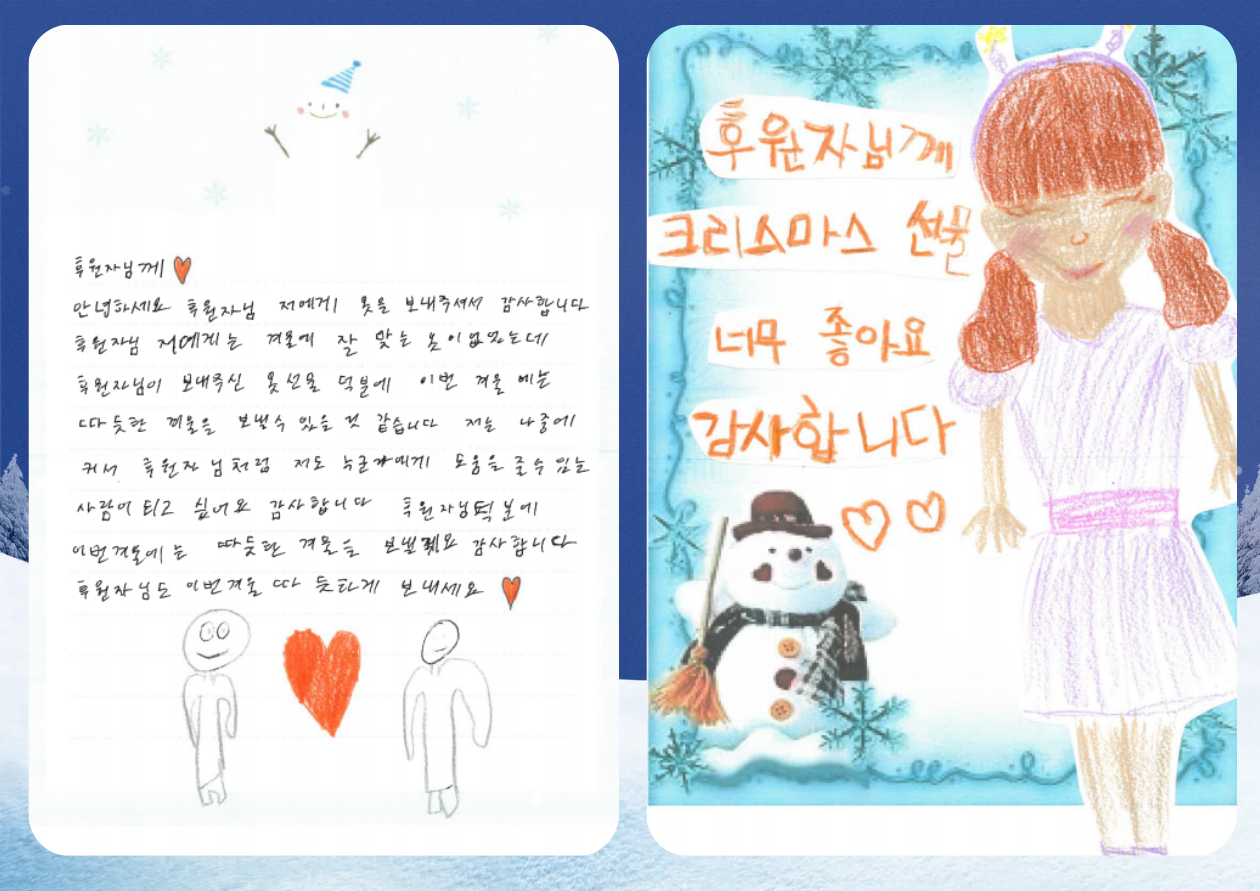 후원자님께
안녕하세요 후원자님 저에게 옷을 보내주셔서 감사합니다
후원자님 저에게는 겨울에 잘 맞는 옷이 없었는데
후원자님이 보내주신 옷선물 덕분에 이번 겨울 에는
따듯한 겨울을 보낼수 있을 것 같습니다 저는 나중에
커서 후원자님처럼 저도 누군가에게 도움을 줄수 있는
사람이 되고 싶어요 감사합니다 후원자님덕분에
이번겨울에는 따듯한 겨울을 보낼께요 감사합니다
후원자님도 이번겨울 따듯하게 보내세요
후원자님께
크리스마스 선물
너무 좋아요
감사합니다